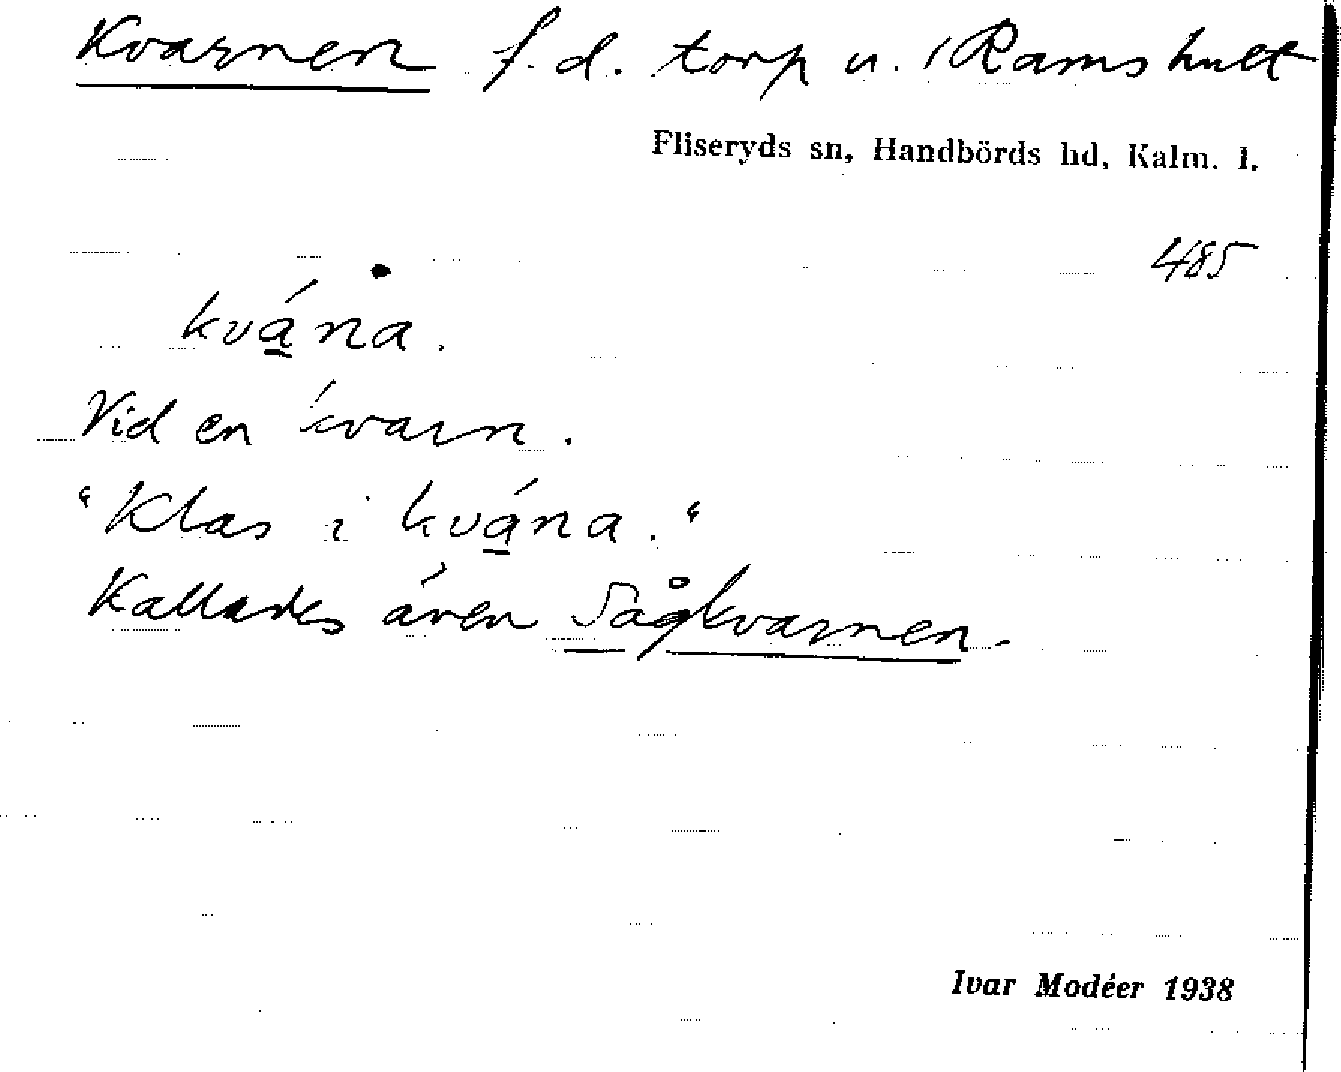 Kvarnen f.d. torp u. Ramshult
Fliseryds sn, Handbörds hd, Kalm. l.
485
kvá̱na.
Vid en kvarn.
"Klas i kvá̱na."
Kallades även Sågkvarnen.
Ivar Modéer 1938